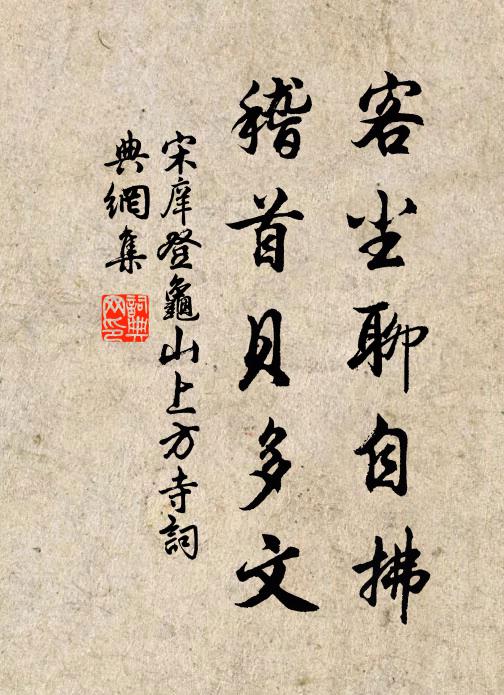 客尘聊自拂
稽首贝多文
宋庠登龜山上方寺詞
典網集
詞典
网印